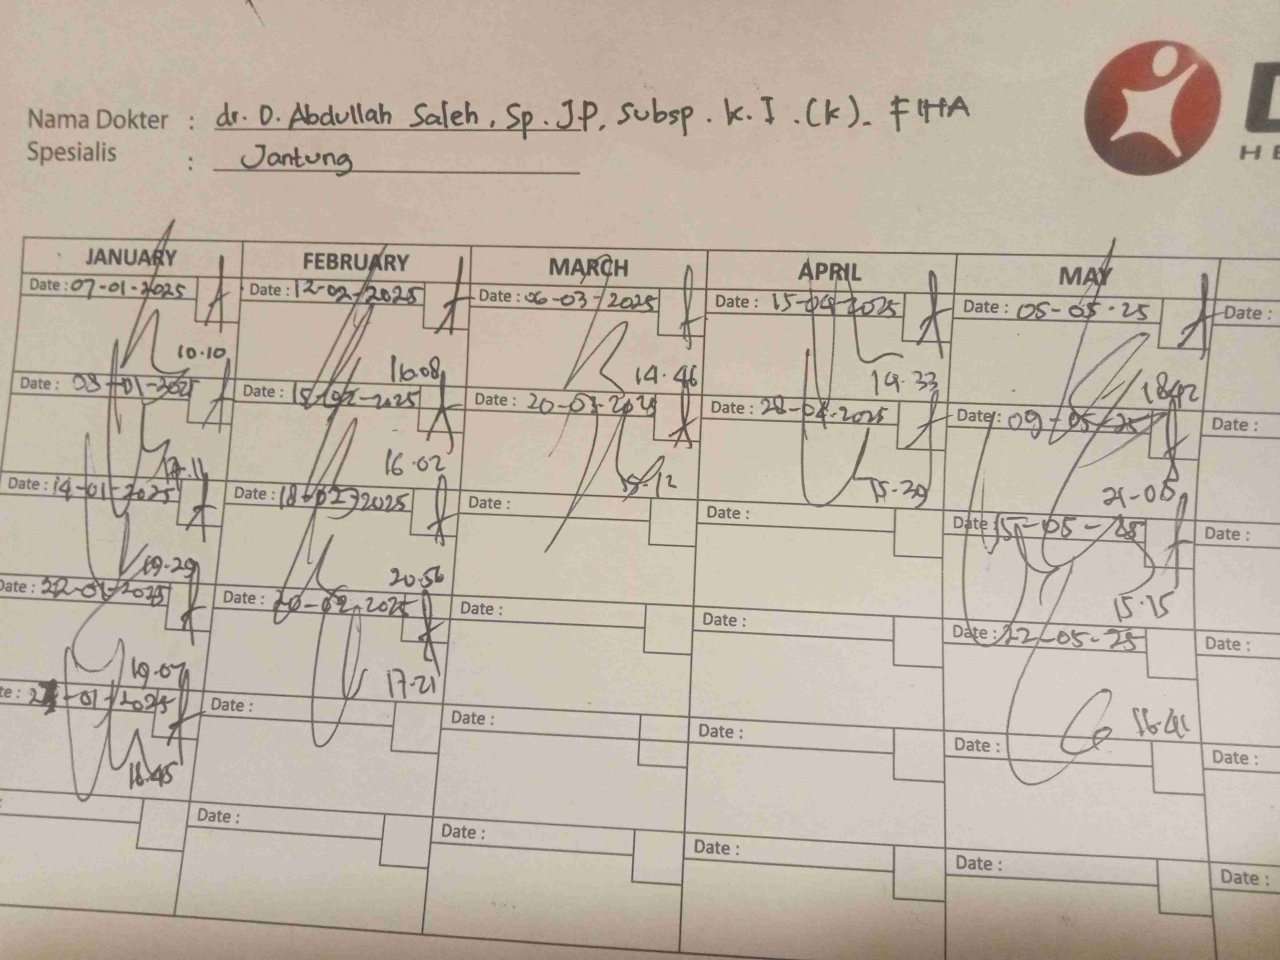 Nama Dokter : dr. D. Abdullah Saleh, Sp. J.P, Subsp. K.I. (K). FIHA
Spesialis : Jantung
D
HE
JANUARY FEBRUARY MARCH APRIL MAY
Date : 07-01-2025 Date : 12-02-2025 Date : 06-03-2025 Date : 15-04-2025 Date : 05-05-25 Date :
10.10 16.08 14.46 19.33
Date : 08-01-2025 Date : 15-02-2025 Date : 20-03-2025 Date : 28-04-2025 Date : 09-05-25 Date :
17.11 16.02 15.29 21-08
Date : 14-01-2025 Date : 18-02-2025 Date : Date : Date : 15-05-25 Date :
19.29 20.56 15.15
Date : 22-01-2025 Date : 20-02-2025 Date : Date : Date : 22-05-25 Date :
19.07 17.21 16.41
te : 01-2025 Date : Date : Date : Date : Date :
16.45
Date : Date : Date : Date : Date :